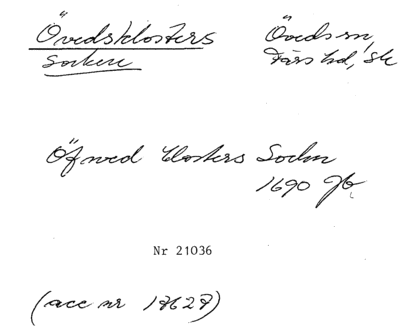 Övedsklosters Öveds sn,
Socken Färs hd, Sk
Öfwed Closters Sochn
1690 jb
Nr 21036
(acc nr 18628)